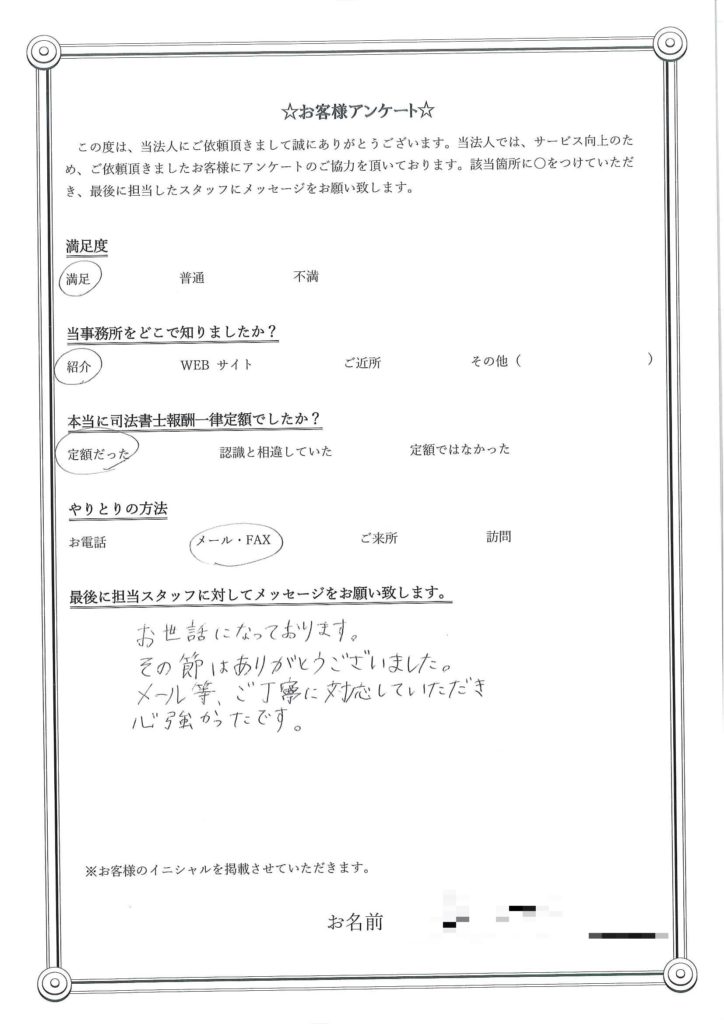 ☆お客様アンケート☆
この度は、当法人にご依頼頂きまして誠にありがとうございます。当法人では、サービス向上のた
め、ご依頼頂きましたお客様にアンケートのご協力を頂いております。該当箇所に〇をつけていただ
き、最後に担当したスタッフにメッセージをお願い致します。
満足度
満足 普通 不満
当事務所をどこで知りましたか？
紹介 WEB サイト ご近所 その他（ ）
本当に司法書士報酬一律定額でしたか？
定額だった 認識と相違していた 定額ではなかった
やりとりの方法
お電話 メール・FAX ご来所 訪問
最後に担当スタッフに対してメッセージをお願い致します。
お世話になっております。
その節はありがとうございました。
メール等、ご丁寧に対応していただき
心強かったです。
※お客様のイニシャルを掲載させていただきます。
お名前